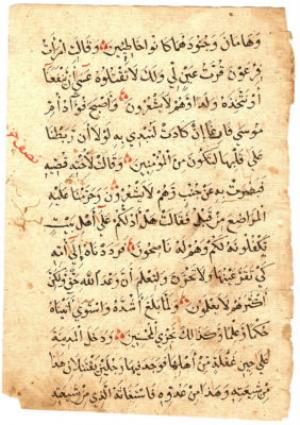 وَهَامَانَ وَجُنُودَهُمَا كَانُوا خَاطِئِينَ وَقَالَتِ امْرَأَتُ
فِرْعَوْنَ قُرَّتُ عَيْنٍ لِي وَلَكَ لَا تَقْتُلُوهُ عَسَى أَنْ يَنْفَعَنَا
أَوْ نَتَّخِذَهُ وَلَدًا وَهُمْ لَا يَشْعُرُونَ وَأَصْبَحَ فُؤَادُ أُمِّ
مُوسَى فَارِغًا إِنْ كَادَتْ لَتُبْدِي بِهِ لَوْلَا أَنْ رَبَطْنَا
عَلَى قَلْبِهَا لِتَكُونَ مِنَ الْمُؤْمِنِينَ وَقَالَتْ لِأُخْتِهِ قُصِّيهِ
فَبَصُرَتْ بِهِ عَنْ جُنُبٍ وَهُمْ لَا يَشْعُرُونَ وَحَرَّمْنَا عَلَيْهِ
الْمَرَاضِعَ مِنْ قَبْلُ فَقَالَتْ هَلْ أَدُلُّكُمْ عَلَى أَهْلِ بَيْتٍ
يَكْفُلُونَهُ لَكُمْ وَهُمْ لَهُ نَاصِحُونَ فَرَدَدْنَاهُ إِلَى أُمِّهِ
كَيْ تَقَرَّ عَيْنُهَا وَلَا تَحْزَنَ وَلِتَعْلَمَ أَنَّ وَعْدَ اللَّهِ حَقٌّ وَلَكِنَّ
أَكْثَرَهُمْ لَا يَعْلَمُونَ وَلَمَّا بَلَغَ أَشُدَّهُ وَاسْتَوَى آتَيْنَاهُ
حُكْمًا وَعِلْمًا وَكَذَلِكَ نَجْزِي الْمُحْسِنِينَ وَدَخَلَ الْمَدِينَةَ
عَلَى حِينِ غَفْلَةٍ مِنْ أَهْلِهَا فَوَجَدَ فِيهَا رَجُلَيْنِ يَقْتَتِلَانِ هَذَا
مِنْ شِيعَتِهِ وَهَذَا مِنْ عَدُوِّهِ فَاسْتَغَاثَهُ الَّذِي مِنْ شِيعَتِهِ
نصف